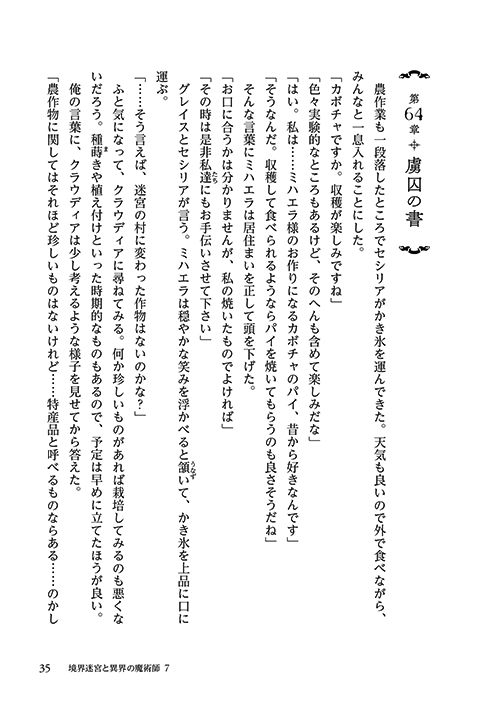 第64章 虜囚の書
農作業も一段落したところでセシリアがかき氷を運んできた。天気も良いので外で食べながら、
みんなと一息入れることにした。
「カボチャですか。収穫が楽しみですね」
「色々実験的なところもあるけど、そのへんも含めて楽しみだな」
「はい。私は……ミハエラ様のお作りになるカボチャのパイ、昔から好きなんです」
「そうなんだ。収穫して食べられるようならパイを焼いてもらうのも良さそうだね」
そんな言葉にミハエラは居住まいを正して頭を下げた。
「お口に合うかは分かりませんが、私の焼いたものでよければ」
「その時は是非私達にもお手伝いさせて下さい」
グレイスとセシリアが言う。ミハエラは穏やかな笑みを浮かべると頷いて、かき氷を上品に口に
運ぶ。
「……そう言えば、迷宮の村に変わった作物はないのかな?」
ふと気になって、クラウディアに尋ねてみる。何か珍しいものがあれば栽培してみるのも悪くな
いだろう。種蒔きや植え付けといった時期的なものもあるので、予定は早めに立てたほうが良い。
俺の言葉に、クラウディアは少し考えるような様子を見せてから答えた。
「農作物に関してはそれほど珍しいものはないけれど……特産品と呼べるものならある……のかし
35 境界迷宮と異界の魔術師 7